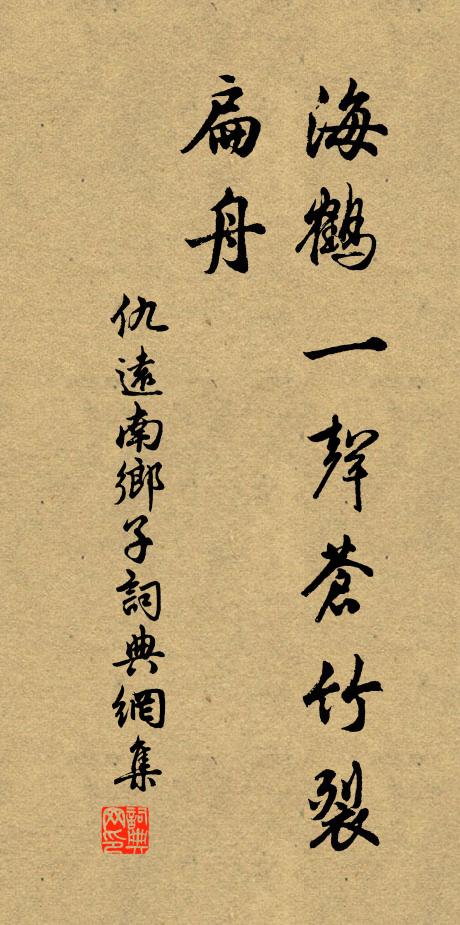 海鶴一聲蒼竹裂
扁舟
仇遠南鄉子詞典網集
詞典网印